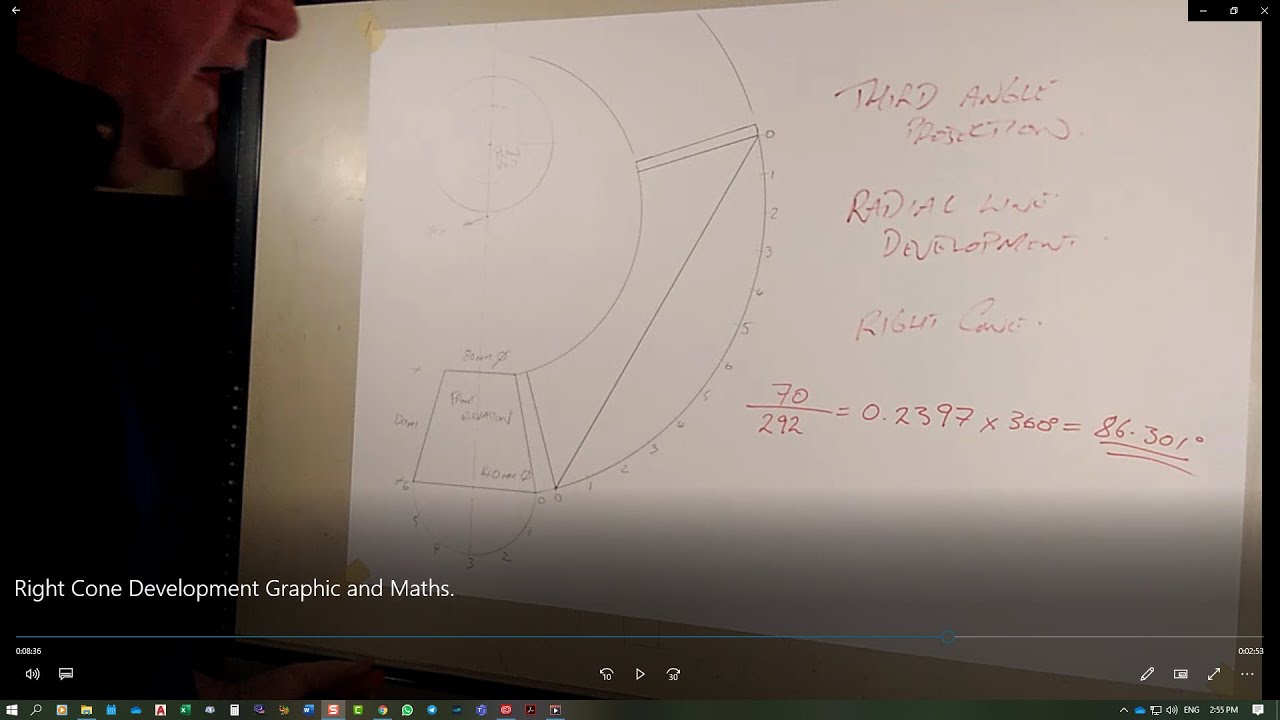 THIRD ANGLE
PROJECTION.
RADIAL LINE
DEVELOPMENT.
RIGHT CONE.
70
292
= 0.2397 x 360° = 86.301°
PLAN
FRONT
ELEVATION
0
1
2
3
4
5
6
5
4
3
2
1
0
0
6
5
4
3
2
1
Right Cone Development Graphic and Maths.
0:08:36
0:02:53
10
30
ENG
2:55 PM